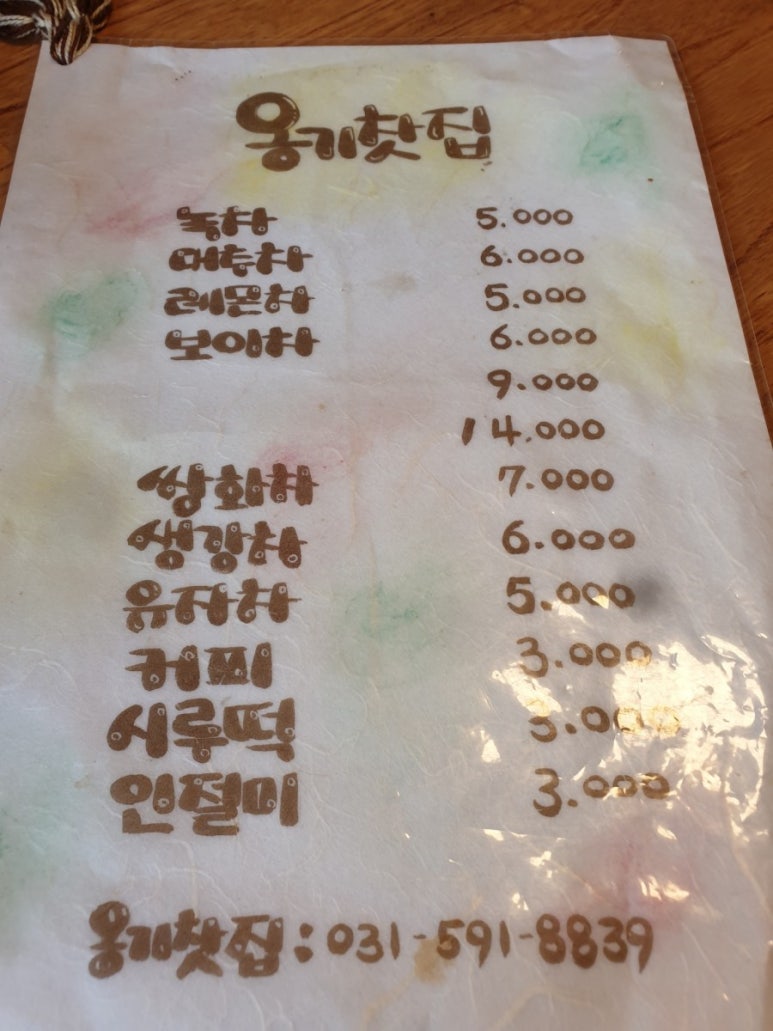 옹기찻집
녹차 5.000
대추차 6.000
레몬차 5.000
보이차 6.000
9.000
14.000
쌍화차 7.000
생강차 6.000
유자차 5.000
커피 3.000
시루떡 3.000
인절미 3.000
옹기찻집 : 031-591-8839